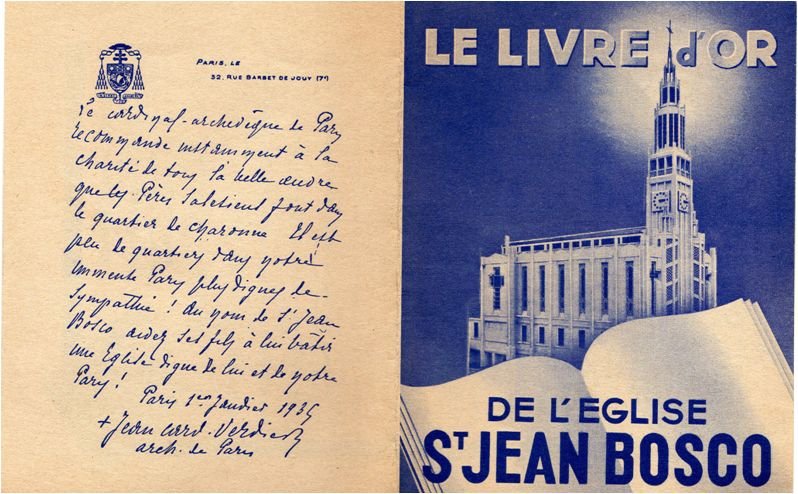 PARIS, LE
32, RUE BARBET DE JOUY (7e)
Le cardinal-archevêque de Paris
recommande instamment à la
charité de tous la belle œuvre
que les Pères Salésiens font dans
le quartier de Charonne Il est
peu de quartiers dans notre
immense Paris plus dignes de
sympathie ! Au nom de St Jean
Bosco aidez ses fils à lui bâtir
une Eglise digne de lui et de notre
Paris !
Paris 1er Janvier
+ Jean card. Verdier
arch. de Paris
LE LIVRE d'OR
DE L'EGLISE
ST JEAN BOSCO